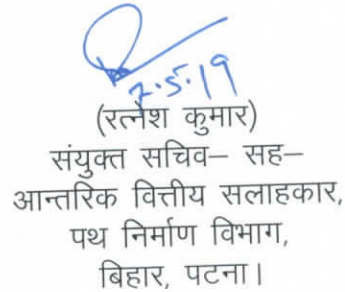 7.5.19
(रत्नेश कुमार)
संयुक्त सचिव– सह–
आन्तरिक वित्तीय सलाहकार,
पथ निर्माण विभाग,
बिहार, पटना।